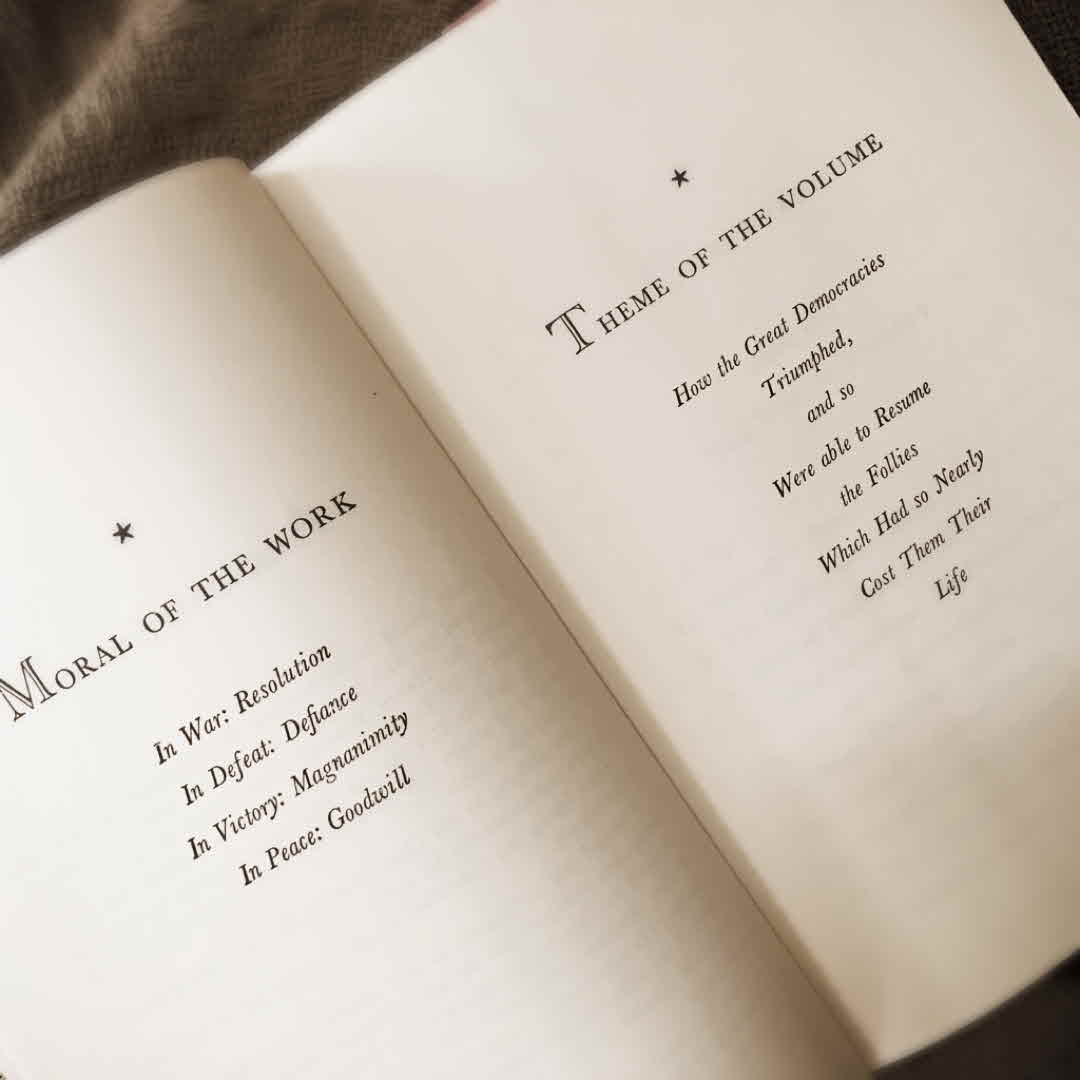 MORAL OF THE WORK
In War: Resolution
In Defeat: Defiance
In Victory: Magnanimity
In Peace: Goodwill
THEME OF THE VOLUME
How the Great Democracies
Triumphed,
and so
Were able to Resume
the Follies
Which Had so Nearly
Cost Them Their
Life